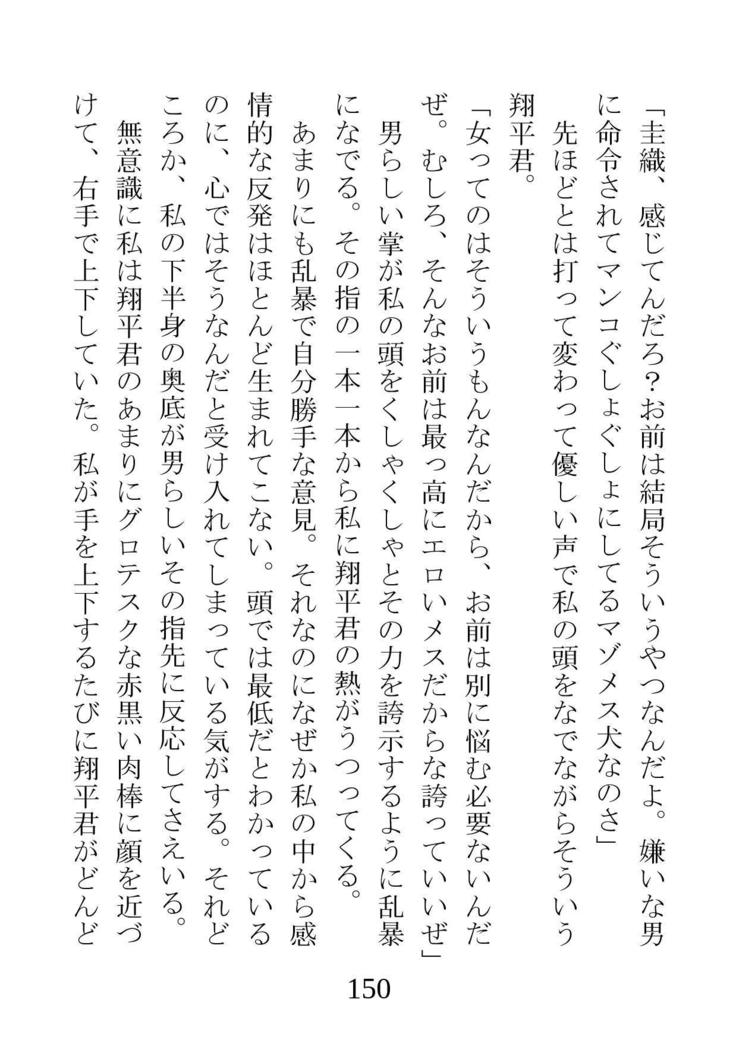 「圭織、感じてんだろ？お前は結局そういうやつなんだよ。嫌いな男
に命令されてマンコぐしょぐしょにしてるマゾメス犬なのさ」
　先ほどとは打って変わって優しい声で私の頭をなでながらそういう
翔平君。
「女ってのはそういうもんなんだから、お前は別に悩む必要ないんだ
ぜ。むしろ、そんなお前は最っ高にエロいメスだからな誇っていいぜ」
　男らしい掌が私の頭をくしゃくしゃとその力を誇示するように乱暴
になでる。その指の一本一本から私に翔平君の熱がうつってくる。
　あまりにも乱暴で自分勝手な意見。それなのになぜか私の中から感
情的な反発はほとんど生まれてこない。頭では最低だとわかっている
のに、心ではそうなんだと受け入れてしまっている気がする。それど
ころか、私の下半身の奥底が男らしいその指先に反応してさえいる。
　無意識に私は翔平君のあまりにグロテスクな赤黒い肉棒に顔を近づ
けて、右手で上下していた。私が手を上下するたびに翔平君がどんど
150